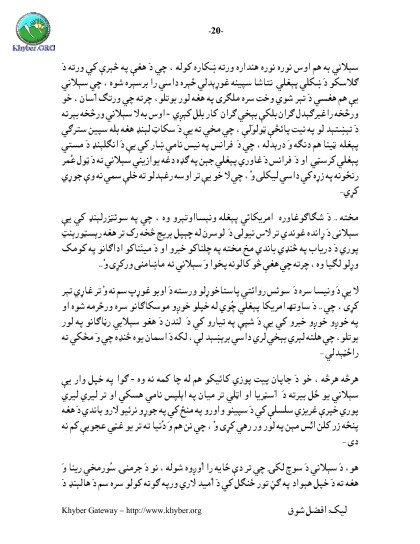 -20-
Khyber.ORG
سېلاني به هم اوس نوره نوره هنداره ورته ښکاره کوله ، چي دَ هغې په څېرې کي ورته دَ
ګلاسکو دَ ښکلي پېغلي نتاشا سپينه غوړېدلې څېره داسي را برسېره شوه ، چي سېلاني
يې هم هغسي دَ تېر شوي وخت سره ملګری په هغه لور بوتلو ، چرته چي ورتګ آسان ، خو
ورځخه راغبرګېدل ګران بلکې بېخي ګران کار بلل کېږي - اوس به لا سېلاني ورځخه بېرته
دَ تېښتېد لو په نيت پانڅې ټولولې ، چي مخې ته يې دَ سکاټ لېنډ هغه بله سپين سترګې
پېغله ټينا هم دنګه ودرېدله ، چي دَ فرانس په نيس نامي ښار کي يې دَ انګلېنډ دَ مستي
پېغلي کرستي او دَ فرانس دَ غاوري پېغلي جېن په ګډه دغه يوازيني سېلاني ته دَ ټول عُمر
رنځونه په زړه کي داسي ليکلي وُ ، چي لا خو يې تر اوسه رغېدلو ته خلې سمي نه وې جوړي
کړي-
مخته .. دَ شګاګو غاوره امريکائي پېغله ونيسا وتېرو وه ، چي په سوئټزرلېنډ کي يې
سېلاني دَ ړانده غوندي تر لاس نيولی دَ لوسرن له چېپل بريج څخه رک تر هغه رېسټورېنټ
پوري دَ درياب په څنډي باندي مخ مخته په چلنا کو خبرو او دَ مينتاکو اداګانو په کومک
وړلو لګيا وه ، چرته چي هغې خو کالونه پخوا وَ سېلاني ته ماښامنی ورکړی وُ..
لا يې دَ ونيسا سره دَ سوئس روائتي پاستا خوړلو ورسته دَ اوبو غوړپ سم نه وُ تر غاړي تېر
کړی ، چي .. دَ ساوتها مريکا پېغلي چُوي له خپلو خوږو موسکاګانو سره ورڅرمه شوه او
په خوږو خوږو خبرو کي يې دَ شپې په تيارو کي دَ لندن دَ هغو سېلايي رڼاګانو په لور
بوتلو ، چي هلته لبرې بېخي لرې داسي برېښېد لې ، لکه دَ اسمان يوه څنډه چي وَ مځکي ته
راځېد لې -
هرڅه هرڅه ، خو دَ جاپان پيت پوزي کائيکو هم له چا کمه نه وه - ګوا په خپل وار يې
سېلاني يو ځل بيرته دَ آسټريا او اټلي تر ميان په اېلپس نامي هسکي او تر لېري لېري
پوري خپرې غريزي سلسلې کي دَ سپينو واورو په منځ کي په جوړو نريو لارو باندي دَ هغه
پنځه زر کلن ائس مېن په لور ور رهي کړی وُ ، چي نن هم وَ دُنيا ته تر يو غټي عجوبې کم نه
دی -
هو، دَ سېلاني دَ سوچ لکۍ چي تر دې څايه را اوږده شوله ، نو دَ جرمنۍ سُور مخي رينا وَ
هغه ته دَ خپل هېواد په ګڼ تور ځنګل کي دَ اُميد لاري ور په ګوته کولو سره سم دَ هالېنډ دَ
Khyber Gateway – http://www.khyber.org
ليک: افضل شوق